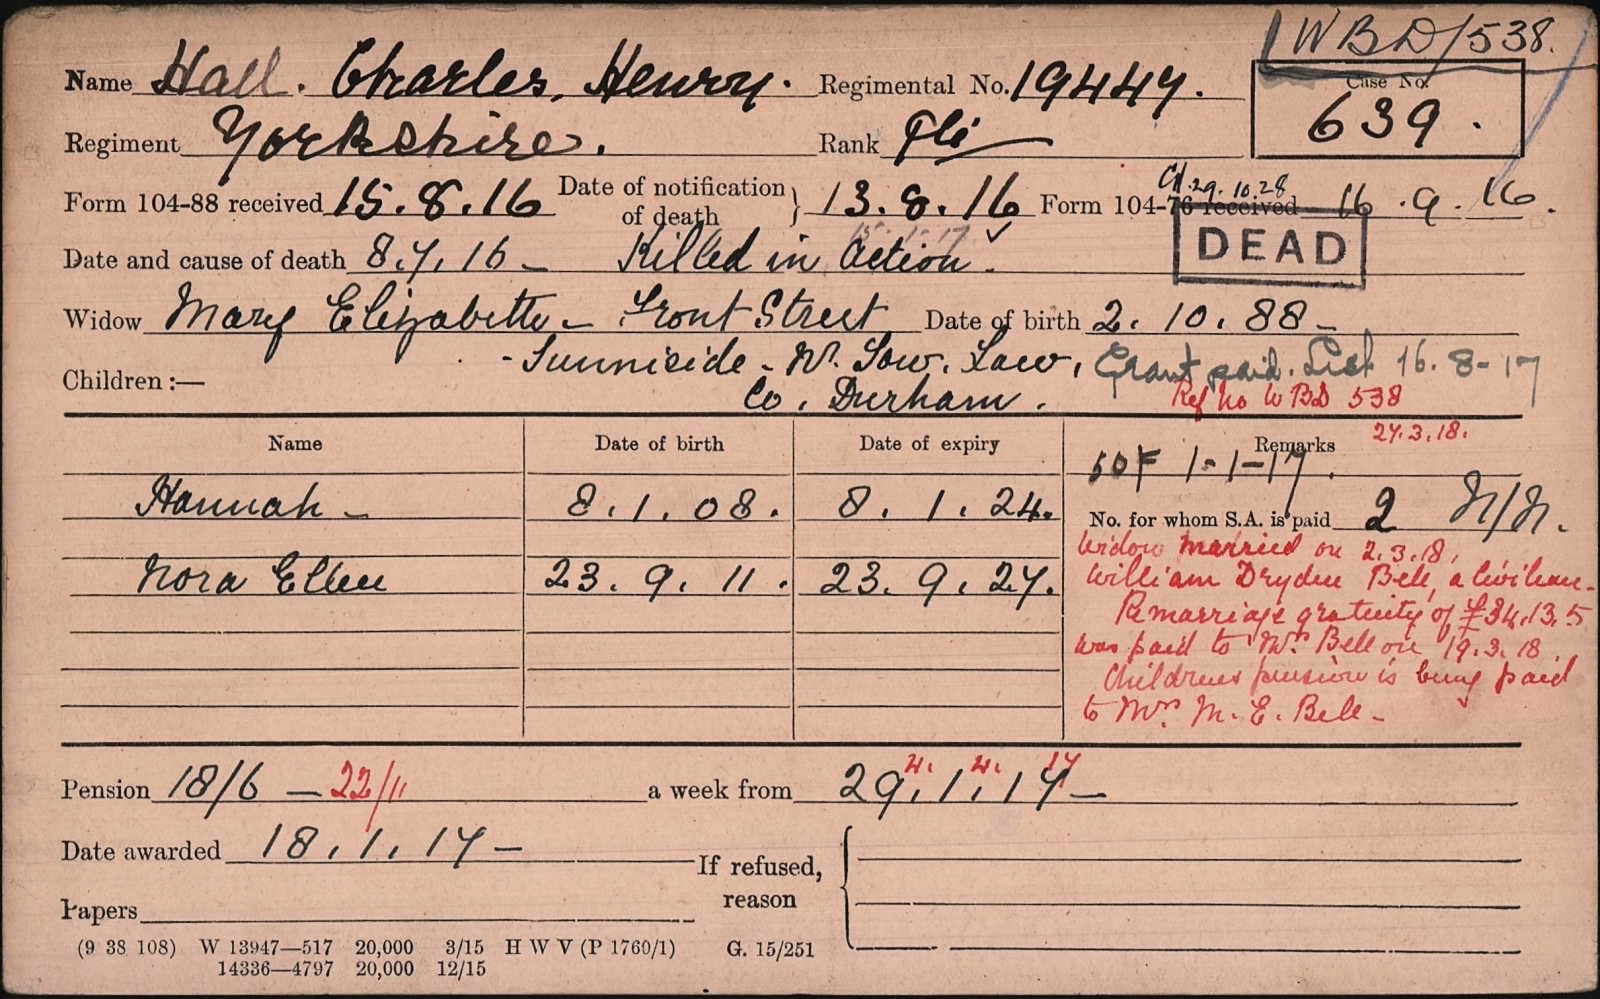 WBD/538.
Name Hall. Charles, Henry. Regimental No. 19447. Case No.
639.
Regiment Yorkshire. Rank Pte
29.10.28
Form 104-88 received 15.8.16 Date of notification of death } 13.8.16 Form 104-76 received 16.9.16.
DEAD
Date and cause of death 8.7.16 - Killed in Action.
Widow Mary Elizabeth - Front Street Date of birth 2.10.88 -
- Sunniside - Nr. Tow. Law, Grant paid. List 16.8-17
Children :— Co. Durham. Ref No WBD 538
27.3.18.
Name Date of birth Date of expiry Remarks
50F 1-1-17.
Hannah - 8.1.08. 8.1.24.
No. for whom S.A. is paid 2 N/N.
Nora Ellen 23.9.11. 23.9.27.
Widow married on 2.3.18,
William Dryden Bell, a civilian.
Remarriage gratuity of £34.13.5
was paid to Mrs Bell on 19.3.18.
Childrens pension is being paid
to Mrs M. E. Bell -
Pension 18/6 - 22/11 a week from 29.1.17 - 4.4.17
Date awarded 18.1.17 -
If refused, reason
Papers
(9 38 108) W 13947—517 20,000 3/15 H W V (P 1760/1) G. 15/251
14336—4797 20,000 12/15